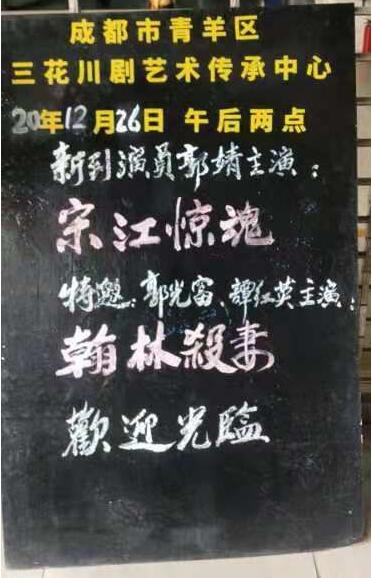 成都市青羊区
三花川剧艺术传承中心
20年12月26日 午后两点
新到演员郭婧主演:
宋江惊魂
特邀:郭光富、譚红英主演:
翰林殺妻
歡迎光臨